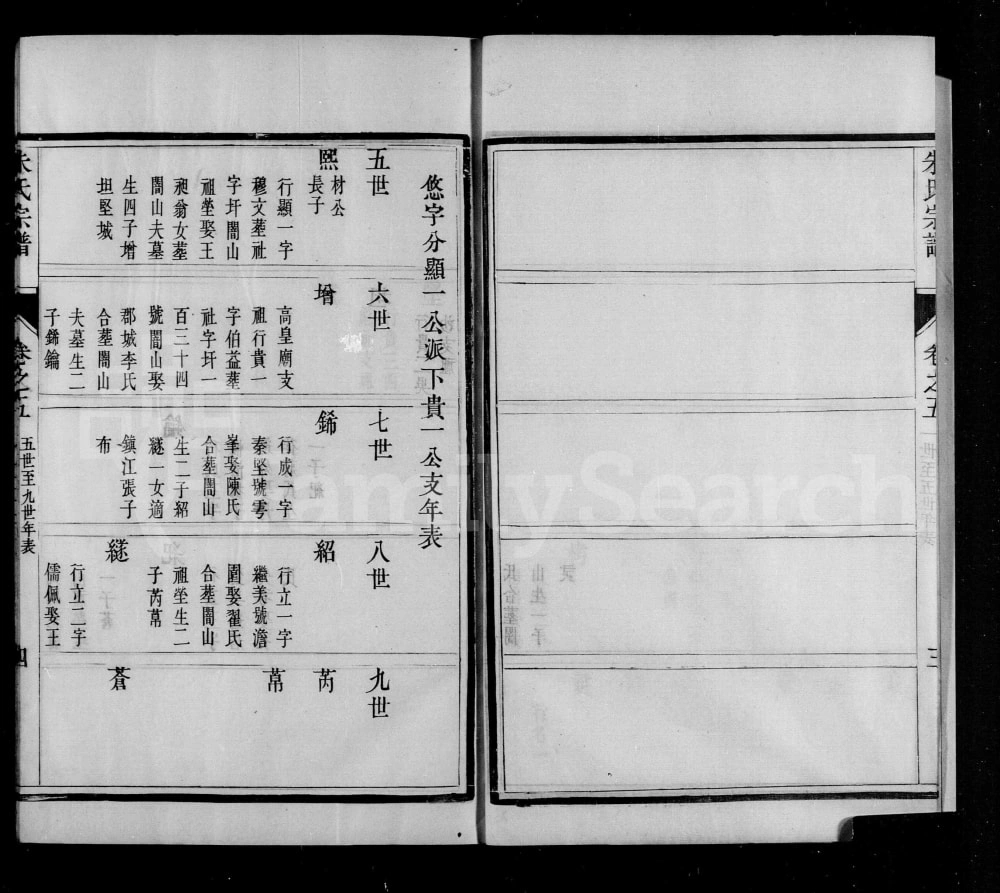 朱氏宗譜
卷之五
三
悠字分顯一公派下貴一公支年表
五世
熙
材公
長子
行顯一字
穆文葬社
字圩闇山
祖塋娶王
昶翁女葬
闇山夫墓
生四子增
坦堅城
六世
增
高皇廟支
祖行貴一
字伯益葬
社字圩一
百三十四
號闇山娶
郡城李氏
合葬闇山
夫墓生二
子鏛鑰
七世
鏛
行成一字
秦堅號雩
峯娶陳氏
合葬闇山
生二子紹
繼一女適
鎮江張子
布
八世
紹
行立一字
繼美號澹
園娶翟氏
合葬闇山
祖塋生二
子芮芾
繼
行立二字
儒佩娶王
九世
芮
芾
蒼
朱氏宗譜
卷之五
五世至九世年表
四
FamilySearch